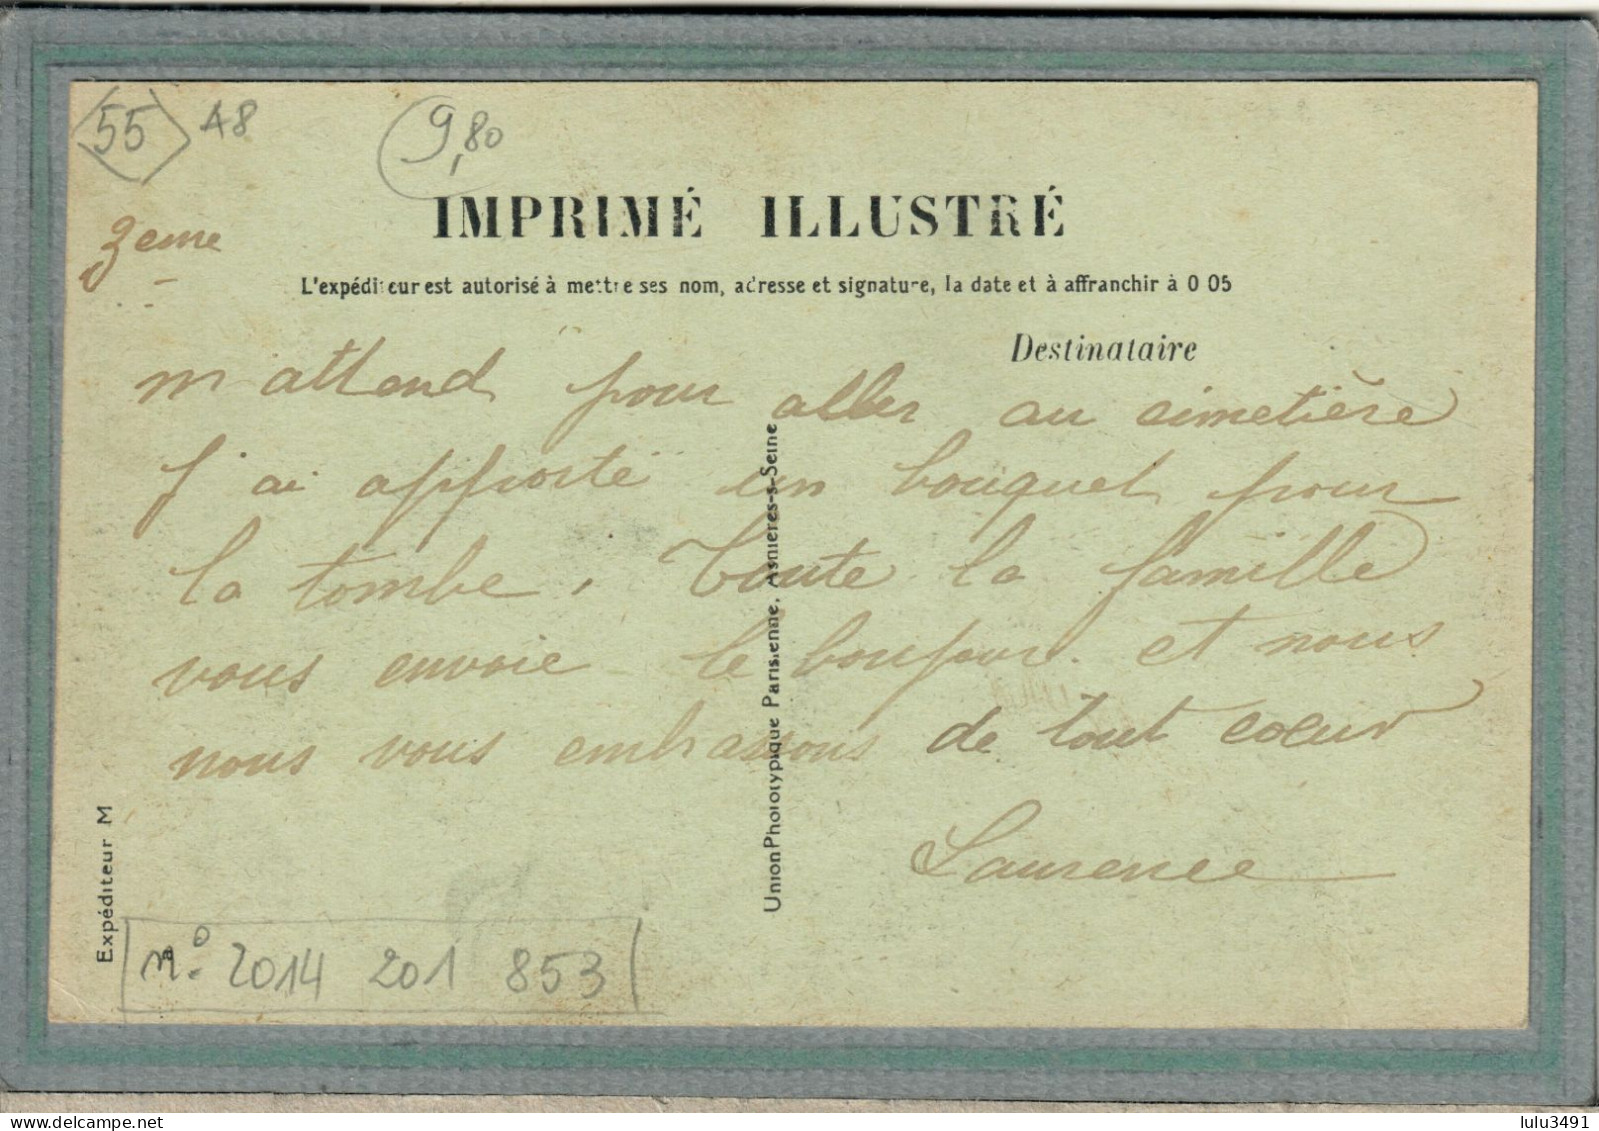 55 A8
9,80
3eme
IMPRIMÉ ILLUSTRÉ
L'expéditeur est autorisé à mettre ses nom, adresse et signature, la date et à affranchir à 0 05
Destinataire
m'attend pour aller au cimetière
J'ai apporté un bouquet pour
la tombe. Toute la famille
vous envoie le bonjour et nous
nous vous embrassons de tout coeur
Laurence
Union Phototypique Parisienne, Asnières-s-Seine
Expéditeur M
n° 2014 201 853
lulu3491